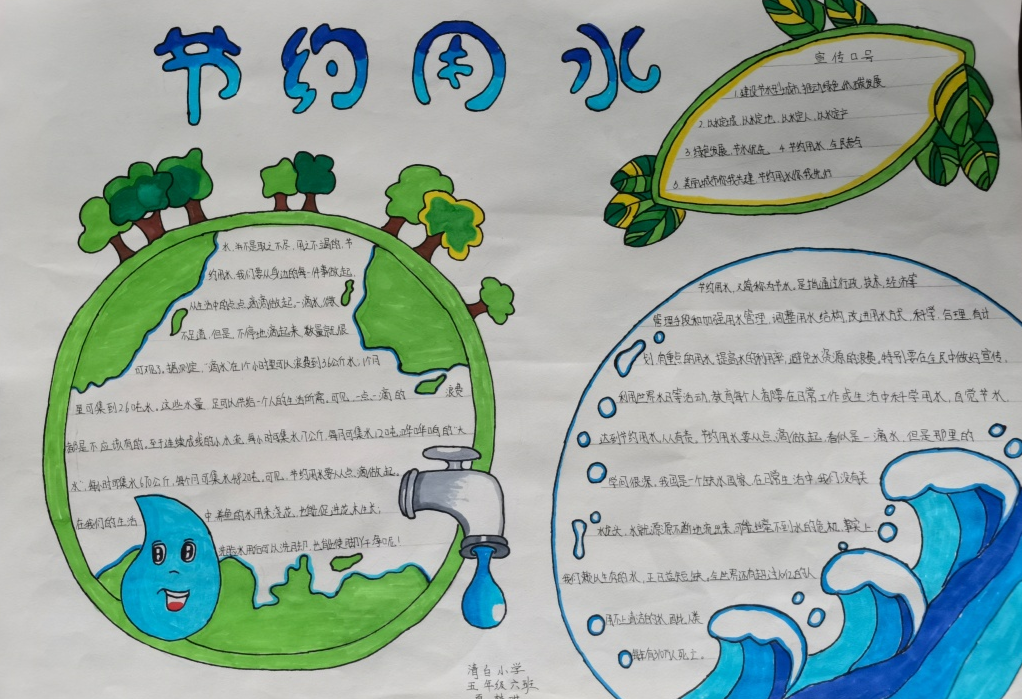 节约用水
宣传口号
1.建设节水型城市,推动绿色低碳发展
2.以水定城、以水定地、以水定人、以水定产
3.绿色发展,节水优先 4.节约用水,全民参与
5.美丽城市你我共建,节约用水你我先行
水,并不是取之不尽,用之不竭的,节
约用水,我们要从身边的每一件事做起,
从生活中的点点滴滴做起,一滴水,微
不足道,但是,不停地滴起来,数量就很
可观了。据测定,“滴水”在1个小时里可以浪费到3.6公斤水,1个月
里可集到2.6吨水。这些水量,足可以供给一个人的生活所需。可见,一点一滴的 浪费
都是不应该有的。至于连续成线的小水流,每小时可集水17公斤,每月可集水12吨,哗哗响的“大
水”,每小时可集水670公斤,每个月可集水482吨。可见,节约用水要从点滴做起。
在我们的生活 中,养鱼的水用来浇花,也能促进花木生长;
洗脸水用后可以洗脚,
节约用水,又简称为节水。是指通过行政、技术、经济等
管理手段加强用水管理,调整用水结构,改进用水方式,科学、合理、有计
划、有重点的用水,提高水的利用率,避免水资源的浪费。特别要在全民中做好宣传,
利用世界水日等活动,教育每个人都要在日常工作或生活中科学用水,自觉节水,
达到节约用水人人有责。节约用水要从点滴做起,看似是一滴水,但是那里的
学问很深。我国是一个缺水国家,在日常生活中,我们没有关
水龙头,水就源源不断地流出来,可能丝毫不到水的危机。事实上
我们赖以生存的水,正日益短缺。全世界还有超过 亿的人
用不上清洁的水,因此,人类
每年有310万人死亡。
清白小学
五年级六班